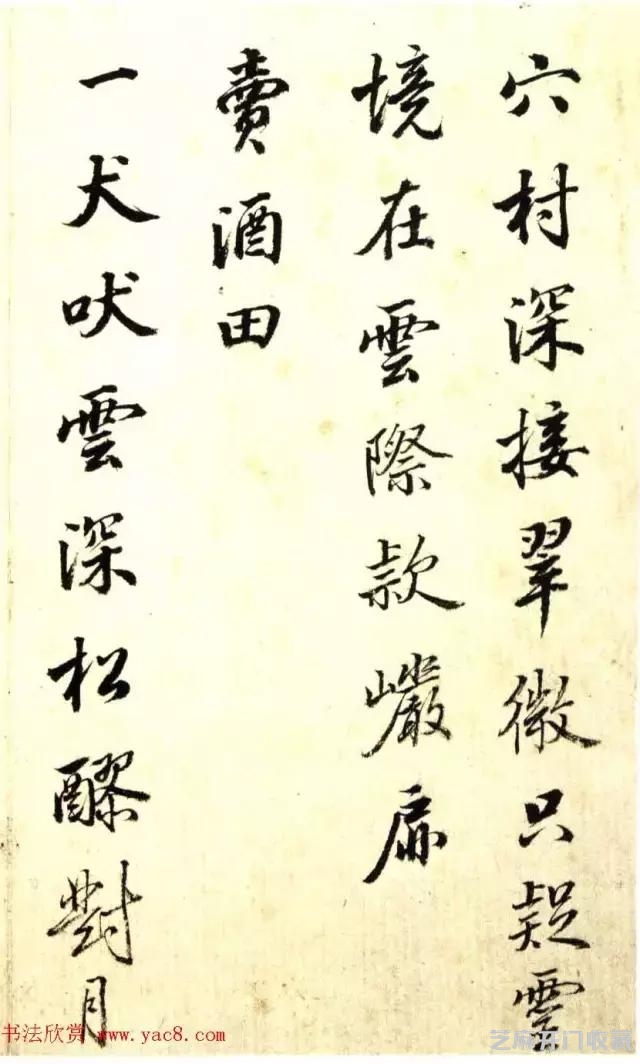 穴村深接翠微只疑靈
境在雲際款巖扉
賣酒田
一犬吠雲深松醪對月
书法欣赏 www.yac8.com
芝麻开门收藏